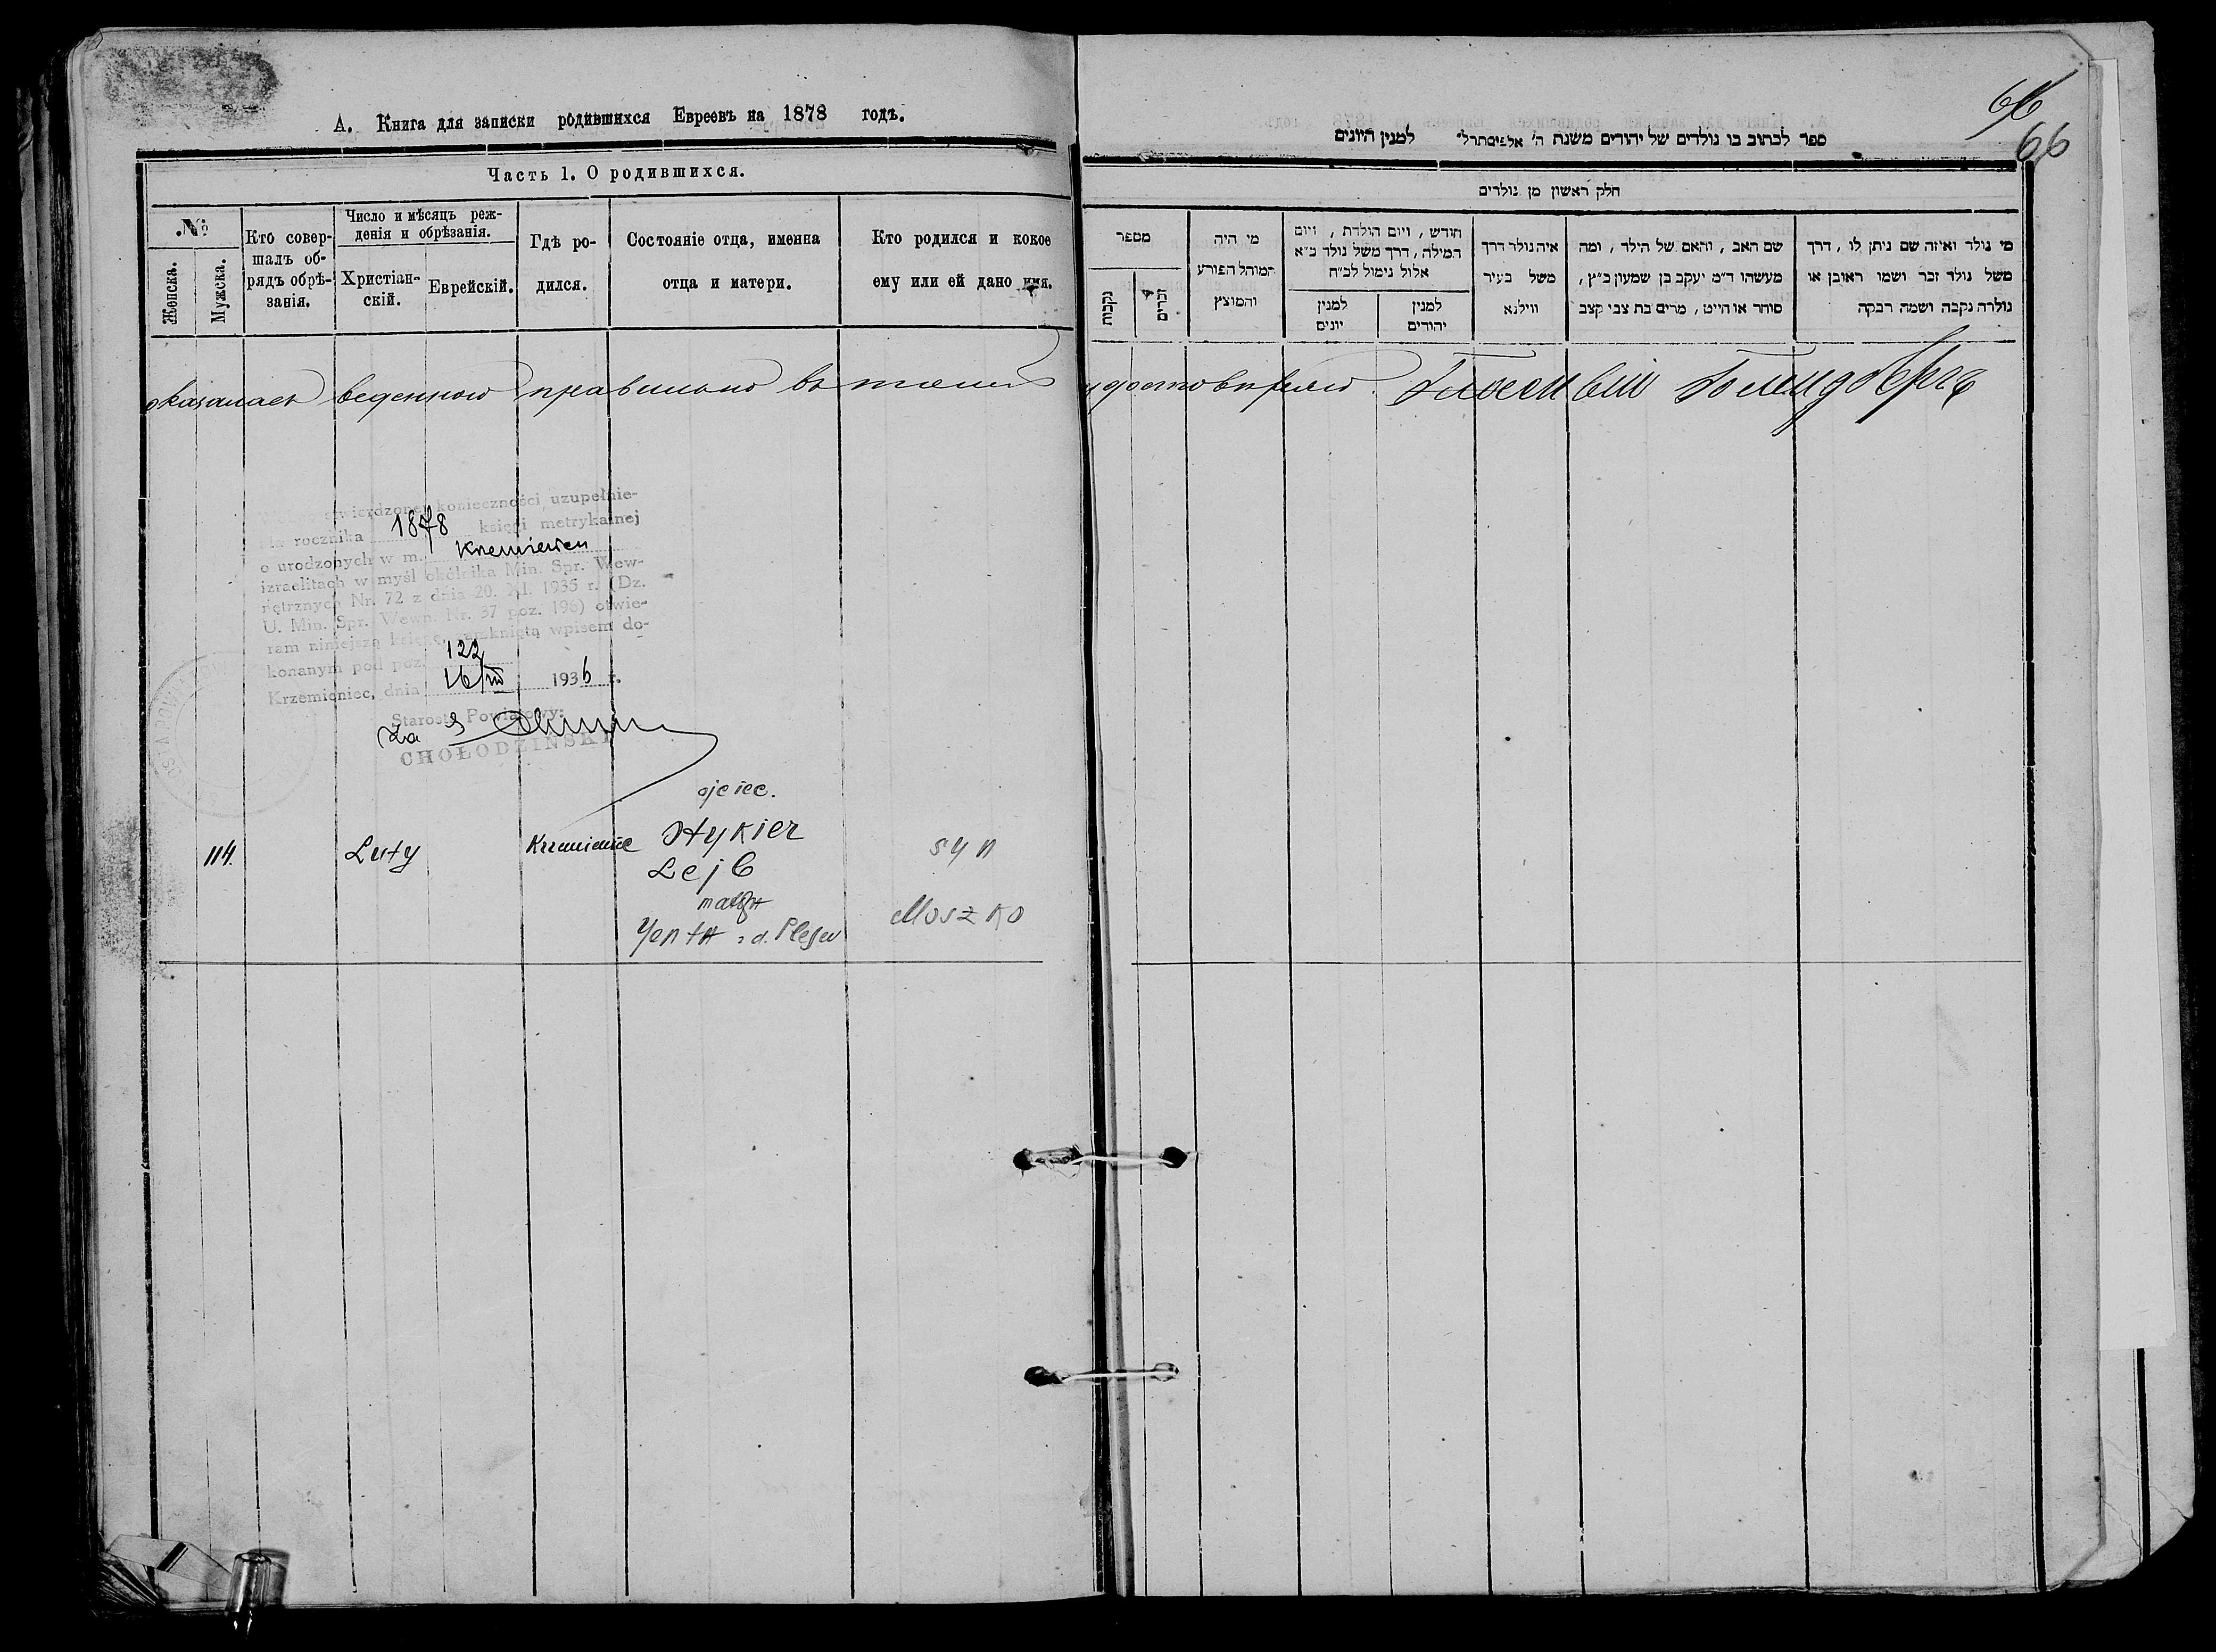 А. Книга для записки родившихся Евреевъ на 1878 годъ.
Часть 1. О родившихся.
№
Женска.
Мужска.
Кто совер-
шалъ об-
рядъ обрѣ-
занія.
Число и мѣсяцъ реж-
денія и обрѣзанія.
Христіан-
скій.
Еврейскій.
Гдѣ ро-
дился.
Состояніе отца, именна
отца и матери.
Кто родился и кокое
ему или ей дано имя.
66
66
ספר לכתוב בו נולדים של יהודים משנת ה' אלפים תרל" למנין היונים
חלק ראשון מן נולדים
מספר
נקבות
זכרים
מי היה
המוהל הפורע
והמוצץ
חודש, ויום הולדת, ויום
המילה, דרך משל נולד כ"א
אלול נימול לכ"ח
למנין
יונים
למנין
יהודים
איה נולד דרך
משל בעיר
ווילנא
שם האב, והאם של הילד, ומה
מעשהו ד"מ יעקב בן שמעון כ"ץ,
סוחר או חייט, מרים בת צבי קצב
מי נולד ואיזה שם ניתן לו, דרך
משל נולד זכר ושמו ראובן או
נולדה נקבה ושמה רבקה
оказалась веденною правильно въ томъ удостовѣряю
twierdzonej konieczności uzupełnie-
nia rocznika 1878 księgi metrykalnej
o urodzonych w m. Krzemieniec
izraelitach w myśl okólnika Min. Spr. Wew-
nętrznych Nr. 72 z dnia 20. XI. 1935 r. (Dz.
U. Min. Spr. Wewn. Nr. 37 poz. 196) otwie-
ram niniejszą księgę, zamkniętą wpisem do-
konanym pod poz. 122
Krzemieniec, dnia 16/III 1936 r.
Starosta Powiatowy:
za
CHOŁODZIŃSKI
114.
Luty
Krzemieniec
ojciec.
Lejb
matka
Yenta z d.
syn
Moszko